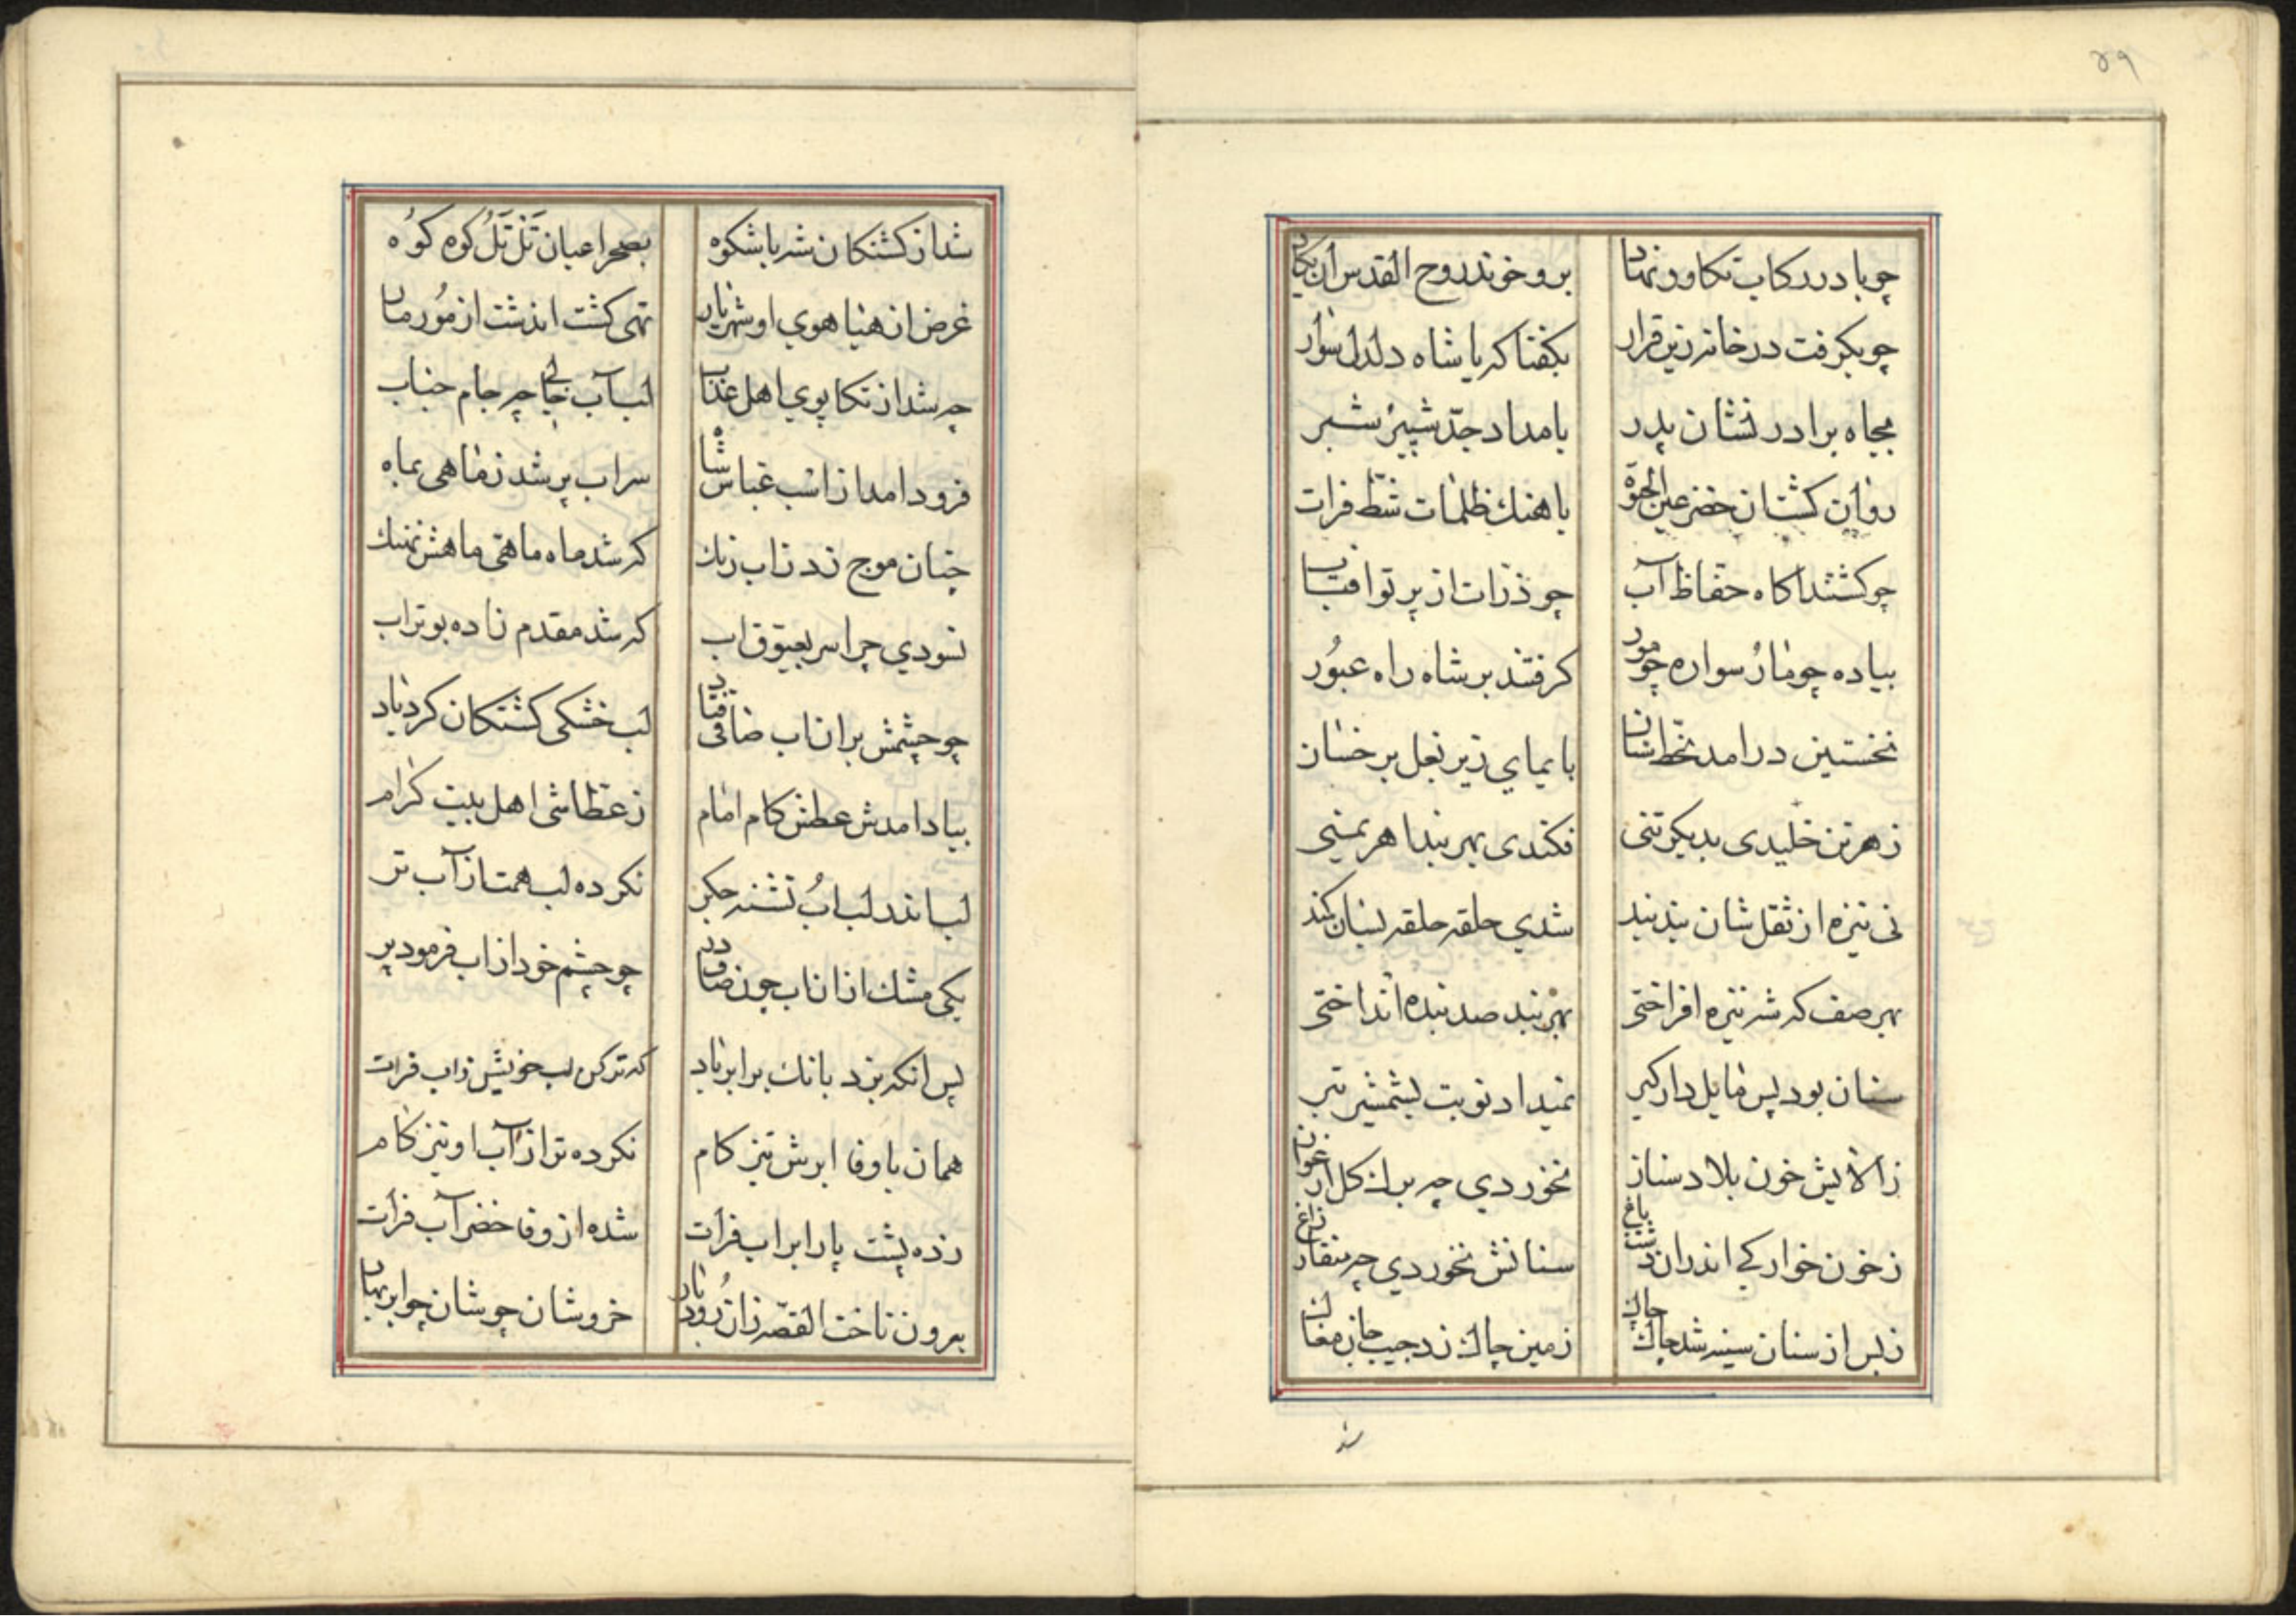 ۴۹
چو پا در رکاب تکاور نهاد برو خوند روح القدس ان یکاد
چو بکرفت در خانه زین قرار بکفتا که یا شاه دلدل سوار
بجاه برادر نشان پدر بامداد جدّ شبیر شبر
روان کشت ان خضر عین الحیوة باهنك ظلمات شطّ فرات
چو کشتند اکاه حفاظ آب چو ذرات از پرتو افتاب
پیاده چو مار سواره چو مور کرفتند بر شاه راه عبُور
نخستین درامد بخط سنان بایمای زیر بغل بر خسان
ز هر تن خلیدی بدیکر تنی فکندی بهر بند اهریمنی
نی نیزه از ثقل شان بند بند شدی حلقه حلقه بسان کمند
بهر صف که شه نیزه افراختی بهر بند صد بنده انداختی
سنان بود پس مایل دار کیر نمیداد نوبت بشمشیر تیر
ز الایش خون بلاد سنان نخوردی چه برك کل ارغوان
ز خون خوارکی اندران دشت باغ سنانش نخوردی چه منقار زاغ
ز بس از سنان سینه شد چاك چاك زمین چاك زد جیب جان مغاك
شد از کشتکان شه باشکوه بصحرا عیان تَل تَل کوه کوُه
غرض ان هیاهوی او شهریار تهی کشت ان دشت از مُور مار
چه شد از تکاپوی اهل عذاب لب آب خالی چه جام حباب
فرود امد از اسب عباس شاه سر اب پر شد ز ماهی بماه
چنان موج زد ز اب زنك که شد ماه ماهی ماهش نهنك
نسودی چرا سر بعیوق اب که شد مقدم زاده بوتراب
چو چشمش بران اب صافی فتاد لب خشکی کشتکان کرد یاد
بیاد امدش عطش کام امام ز عطاشی اهل بیت کرام
لب اند لب ابُ تشنه جکر نکرده لب همت از آب تر
یکی مشك از ان اب چون صاف در چو چشم خود از اب فرمود پر
پس انکه بزد بانك بر ابر باد که تر کن لب خویش ز اب فرات
همان باوفا ابرش تیز کام نکرده تر از آب او نیز کام
زده پشت پا را بر اب فرات شده از وفا خضر آب فرات
برون تاخت القصّه زان رُودبار خروشان چو شان چو ابر بهار